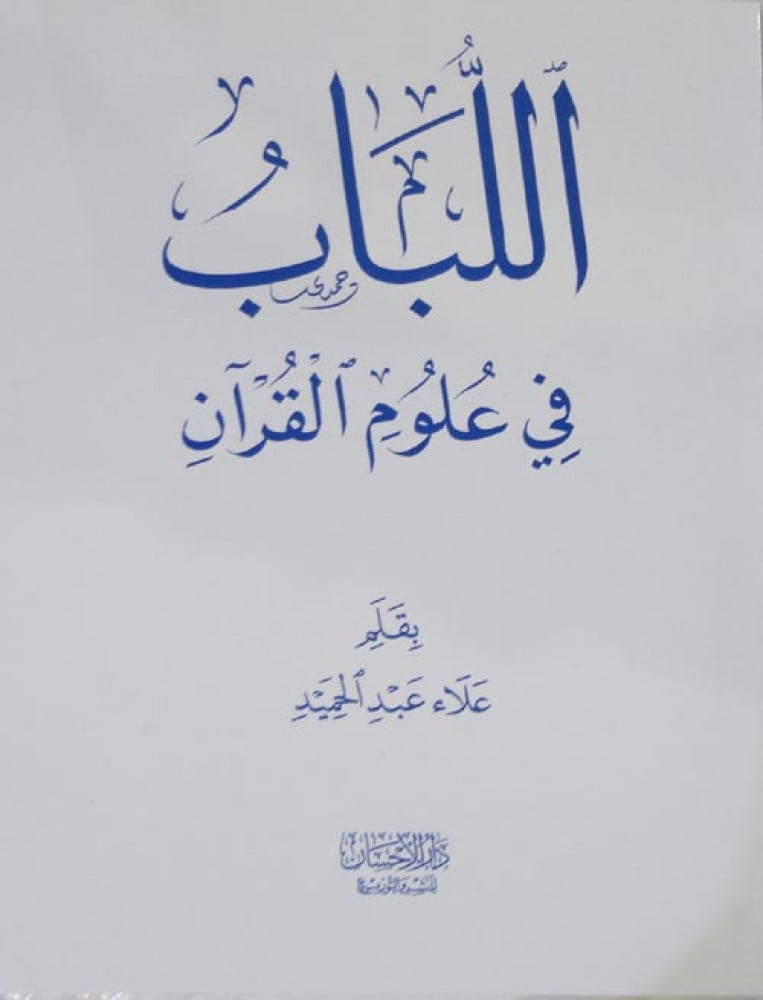 ٱللُّبَابُ
فِي عُلُومِ ٱلْقُرْآنِ
بِقَلَمِ
عَلَاء عَبْدِ ٱلْحَمِيدِ
دَارُ الإِحْسَان
للنشر والتوزيع